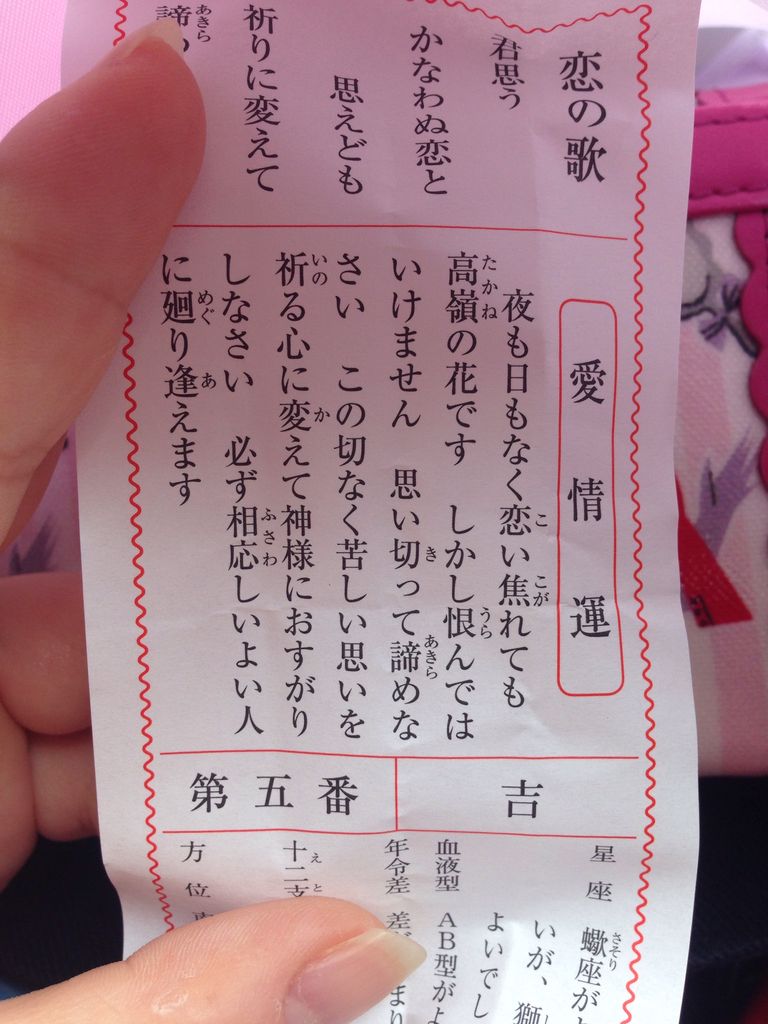 恋の歌
君思う
かなわぬ恋と
思えども
祈りに変えて
諦
あきら
愛情運
夜も日もなく恋い焦れても
こ
こが
高嶺の花です しかし恨んでは
たかね
うら
いけません 思い切って諦めな
き
あきら
さい この切なく苦しい思いを
祈る心に変えて神様におすがり
いの
か
しなさい 必ず相応しいよい人
ふさわ
に廻り逢えます
めぐ
あ
吉
第五番
星座 蠍座が
さそり
いが、獅
よいでし
血液型 AB型がよ
年令差 差が
まり
十二支
えと
方位